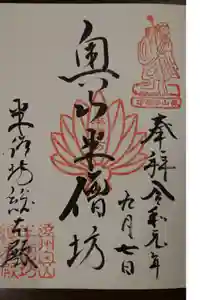 奉拝 令和元年
九月七日
奥山半僧坊
半僧坊総本殿